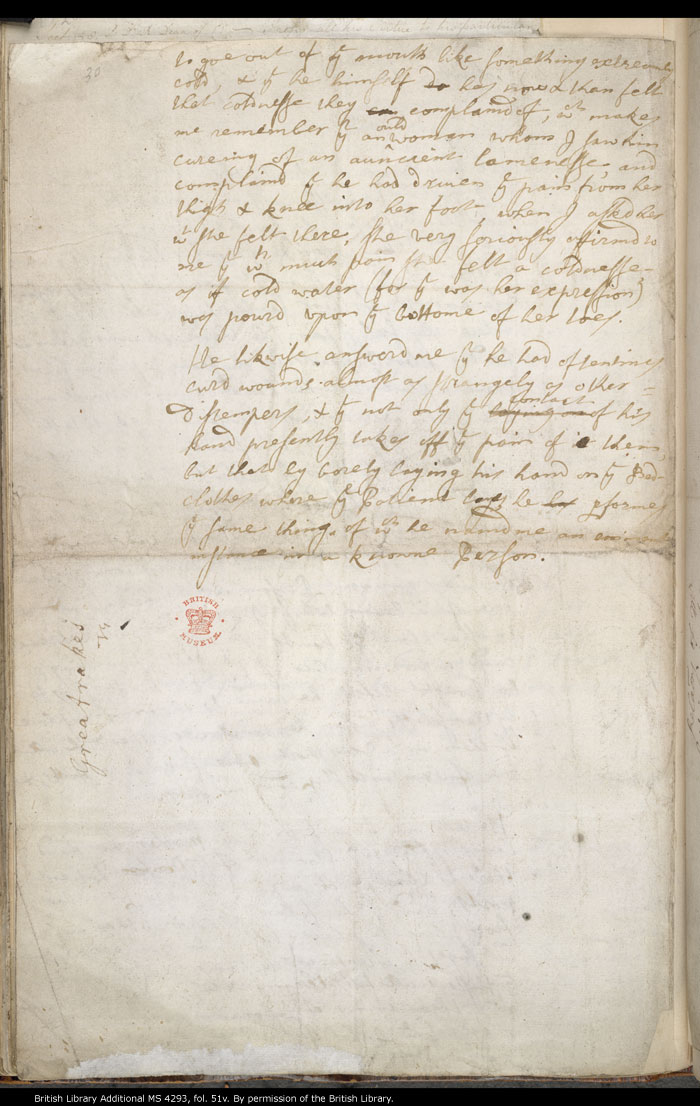 30
to goe out of yͤ mouth like something extreamly
cold, & yᵗ he himself do has now & than felt
that coldnesse they complaind of, wᶜʰ makes
me remember yᵗ an ould woman whom I saw him
cureing of an auncient lamenesse, and
complaind yᵗ he had driven yͤ pain from her
thigh & knee into her foot, when I asked her
wᵗ she felt there, she very seriously affirmd to
me yᵗ wᵗʰ much pain she felt a coldnesse
as if cold water (for yᵗ was her expression)
was pourd upon yͤ bottome of her toes.
He likewise answerd me yᵗ he had oftentimes
curd wounds almost as strangely as other
distempers, & yᵗ not only yͤ laying on contact of his
hand presently takes off yͤ pain of them,
but that by barely laying his hand on yͤ Bed-
clothes where yͤ Patient lays he performes
yͤ same thing. of wᶜʰ he namd me an eminent
instance in a knowne Person.
BRITISH
MUSEUM
Greatrakes
British Library Additional MS 4293, fol. 51v. By permission of the British Library.